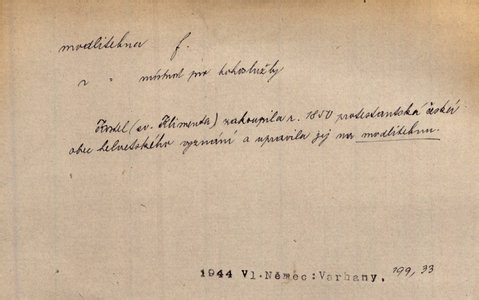 modlitebna f.
místnost pro bohoslužby
Kostel (sv. Klimenta) zakoupila r. 1850 protestantská česká
obec helvetského vyznání a upravila jej na modlitebnu.
1944 Vl.Němec:Varhany, 199, 33